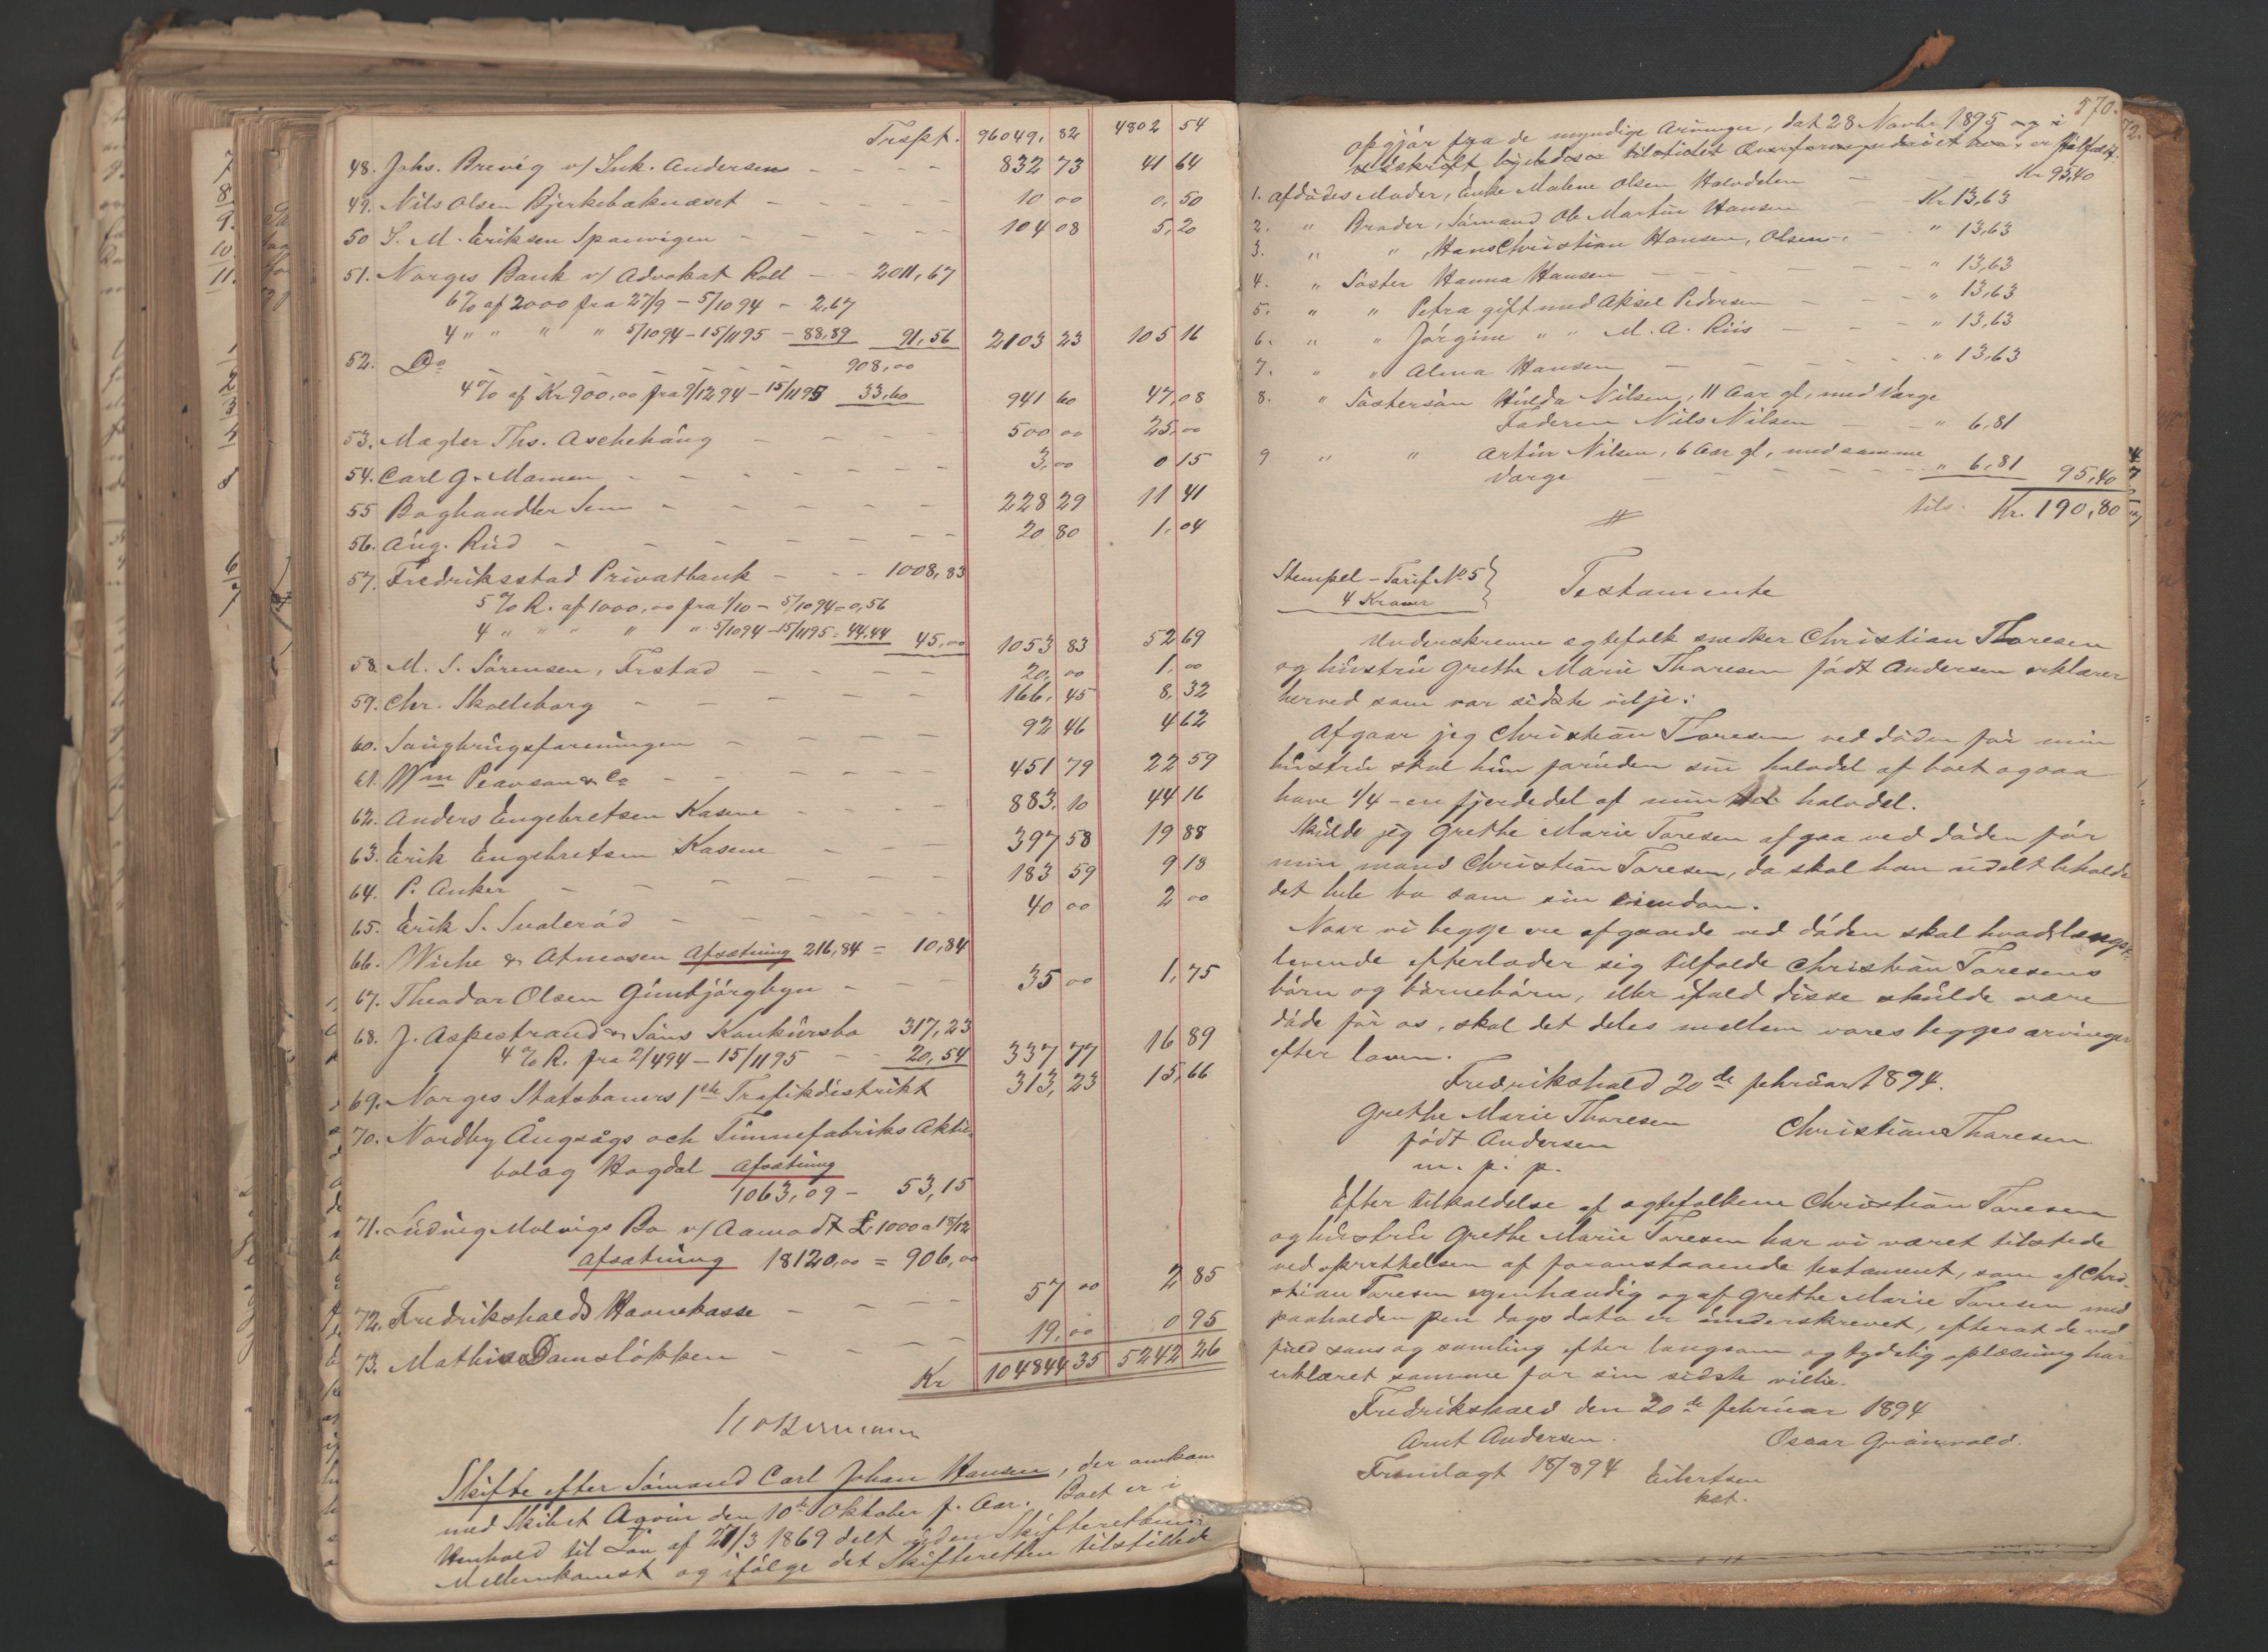 Trspt. 96049,82 4802 54
48. Johs. Brevig v/ Ink. Andersen - - - 832 73 41 64
49. Nils Olsen Bjerkebæknæset - - - - 10 00 0,50
50 S. M. Eriksen Sponvigen - - - - 104 08 5,20
51. Norges Bank v/ Advokat Roll - - 2011,67
6% af 2000 fra 27/9 - 5/10 94 - 2,67
4 " " " " 5/10 94 - 15/11 95 - 88,89 91,56 2103 23 105 16
52. Do - - - - - 908,00
4% af Kr 900,00 fra 9/12 94 - 15/11 95 33,60 941 60 47,08
53. Mægler Ths. Aschehoug - - - - 500 00 25,00
54. Carl G. Mamen - - - - - 3,00 0 15
55 Boghandler Sem - - - - - 228 29 11 41
56. Aug. Rud - - - - - - 20 80 1,04
57. Fredriksstad Privatbank - - - 1008,83
5% R. af 1000,00 fra 1/10 - 5/10 94 = 0,56
4 " " " " " 5/10 94 - 15/11 95 = 44,44 45,00 1053 83 52 69
58. M. S. Sørensen, Frstad - - - - 20,00 1,00
59. Chr. Skolleborg - - - - - 166,45 8,32
60. Saugbrugsforeningen - - - - 92 46 4 62
61. Wm Pearson & Co - - - - - 451 79 22 59
62. Anders Engebretsen Kasene - - - - 883,10 44 16
63. Erik Engebretsen Kasene - - - 397 58 19 88
64. P. Anker - - - - - - 183 59 9 18
65. Erik S. Svalerød - - - - - 40 00 2 00
66. Wiche & Atmosen Afsætning 216,84 = 10,84
67. Theodor Olsen Gunbjørgbyn - - - 35 00 1,75
68. J. Aspestrand & Søns Konkursbo 317,23
4% R. fra 2/4 94 - 15/11 95 - - 20,54 337 77 16 89
69. Norges Statsbaners 1ste Trafikdistrikt 313,23 15,66
70. Nordby Ångsågs och Tunnefabriks Aktie-
bolag Hogdal Afsætning
1063,09 - 53,15
71. Ludvig Molvigs Bo v/ Aamodt £ 1000 a 18/12
Afsætning 18120,00 = 906,00
72. Fredrikshalds Havnekasse - - - - 57 00 2 85
73. Mathias Damsløkken - - - - 19,00 0 95
Kr 104844 35 5242 26
Skifte efter Sømand Carl Johan Hansen, der omkom
med Skibet Agvin den 10de Oktober f. Aar. Boet er i
Henhold til Lov af 21/3 1869 delt uden Skifterettens
Mellemkomst og ifølge det Skifteretten tilstillede
570.
opgjør fra de myndige Arvinger, dat 28 Novbr 1895 og i
Kr 95,40
1. Afdødes Moder, Enke Malene Olsen Halvdelen
2. " Broder, Sømand Ole Martin Hansen - Kr 13,63
3. " " Hans Christian Hansen, Olsen - - " 13,63
4. " Søster Hanna Hansen - - - - " 13,63
5. " " Petra gift med Aksel Pedersen - - " 13,63
6. " " Jørgine " " M. A. Riis - - " 13,63
7. " " Alma Hansen - - - - " 13,63
8. " Søstersøn Hulda Nilsen, 11 Aar gl, med Værge
Faderen Nils Nilsen - - " 6,81
9 " " Artur Nilsen, 6 Aar gl, med samme
Værge - - - - " 6,81 95,40
tils. Kr. 190,80
Stempel-Tarif No. 5
4 Kroner
Testamente
Underskrevne egtefolk snedker Christian Thoresen
og hustru Grethe Marie Thoresen født Andersen erklærer
herved som vor sidste vilje:
Afgaar jeg Christian Thoresen ved døden før min
hustru skal hun foruden sin halvdel af boet ogsaa
have 1/4 - en fjerdedel af min halvdel.
Skulde jeg Grethe Marie Toresen afgaa ved døden før
min mand Christian Toresen, da skal han udelt beholde
det hele bo som sin eiendom.
Naar vi begge er afgaaede ved døden skal hvad længst-
levende efterlader sig tilfalde Christian Toresens
børn og børnebørn, eller ifald disse skulde være
døde før os, skal det deles mellem vores begges arvinger
efter loven.
Fredrikshald 20de februar 1894.
Grethe Marie Thoresen Christian Thoresen
født Andersen
m. p. p.
Efter tilkaldelse af egtefolkene Christian Toresen
og hustru Grethe Marie Toresen har vi været tilstede
ved oprettelsen af foranstaaende testament, som af Chri-
stian Toresen egenhændig og af Grethe Marie Toresen med
paaholden pen dags dato er underskrevet, efterat de ved
fuld sans og samling efter langsom og tydelig oplæsning har
erklæret samme for sin sidste villie.
Fredrikshald den 20de februar 1894
Arnt Andersen. Oscar Grünvold.
Fremlagt 18/8 94 Eilertsen
kst.